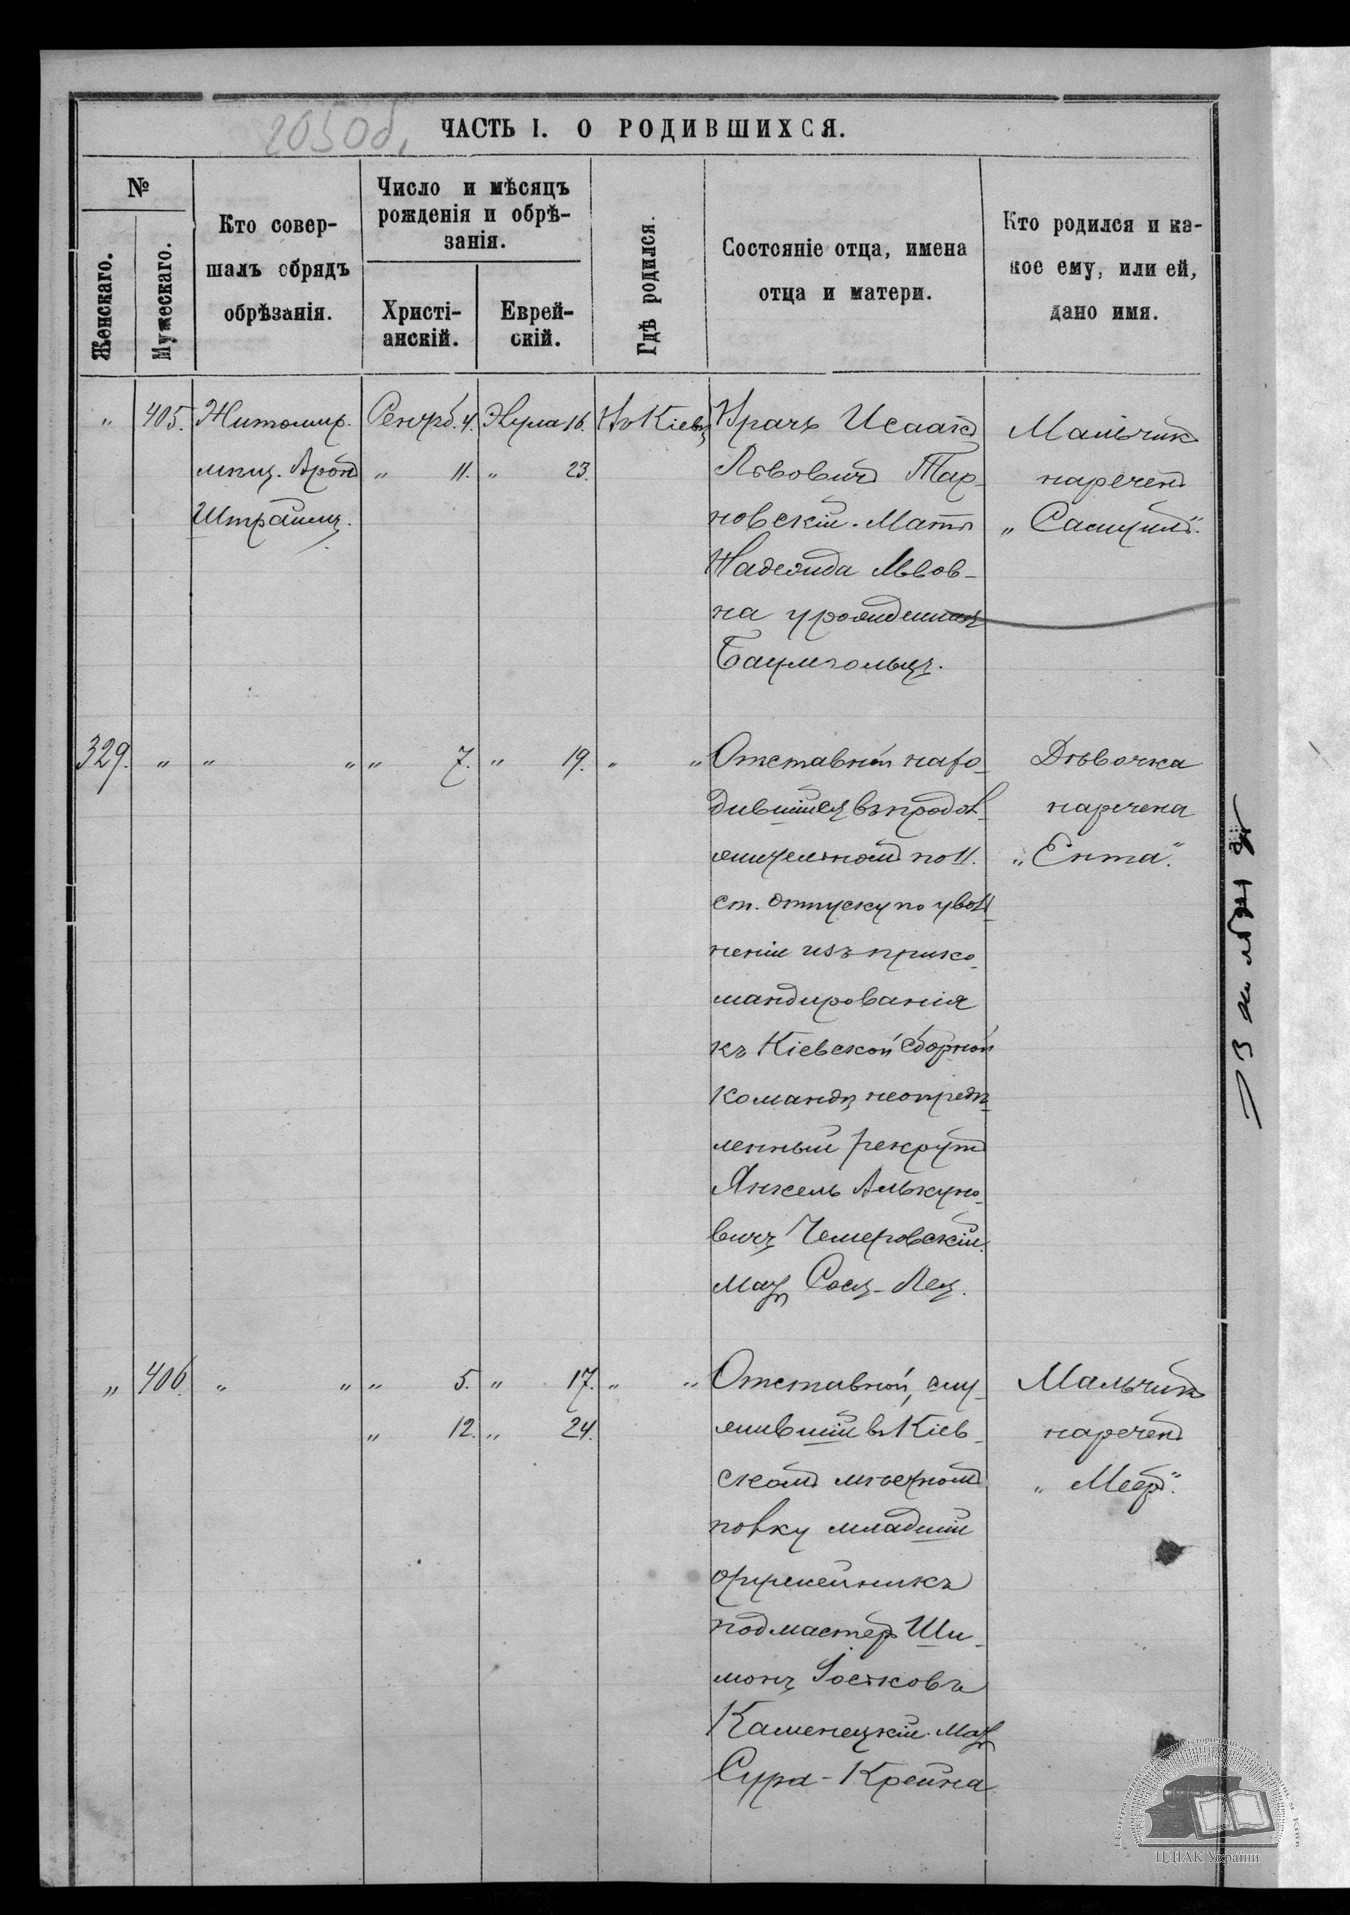 205об.
ЧАСТЬ I. О РОДИВШИХСЯ.
№
Женскаго.
Мужескаго.
Кто совер-
шалъ обрядъ
обрѣзанія.
Число и мѣсяцъ
рожденія и обрѣ-
занія.
Христі-
анскій.
Еврей-
скій.
Гдѣ родился.
Состояніе отца, имена
отца и матери.
Кто родился и ка-
кое ему, или ей,
дано имя.
" 405. Житомир.
мѣщ. Аронъ
4. 16. Въ Кіевѣ
" 11. " 23.
Врачъ Исаакъ
Львовичъ Тар-
новскій. Мать
Надежда Львов-
на урожденная
Баумгольцъ.
Мальчикъ
нареченъ
„Самуилъ".
329. " " " " 7. " 19. " "
Отставной нахо-
дившійся въ продол-
жительномъ по II.
ст. отпуску по уволь-
неніи изъ прико-
мандированія
къ Кіевской сборной
командѣ неопредѣ-
ленный рекрутъ
Янкель
вичъ Чемеровскій.
мать Лея.
Дѣвочка
наречена
„Ента".
" 406. " " " 5. " 17. " "
" 12. " 24.
Отставной, слу-
жившій въ Кіев-
скомъ мѣстномъ
полку младшій
оружейникъ
подмастер. Ши-
монъ Іоськовъ
Каменецкій. мать
Сура-Крейна
Мальчикъ
нареченъ
„Меер".
ЦДІАК України